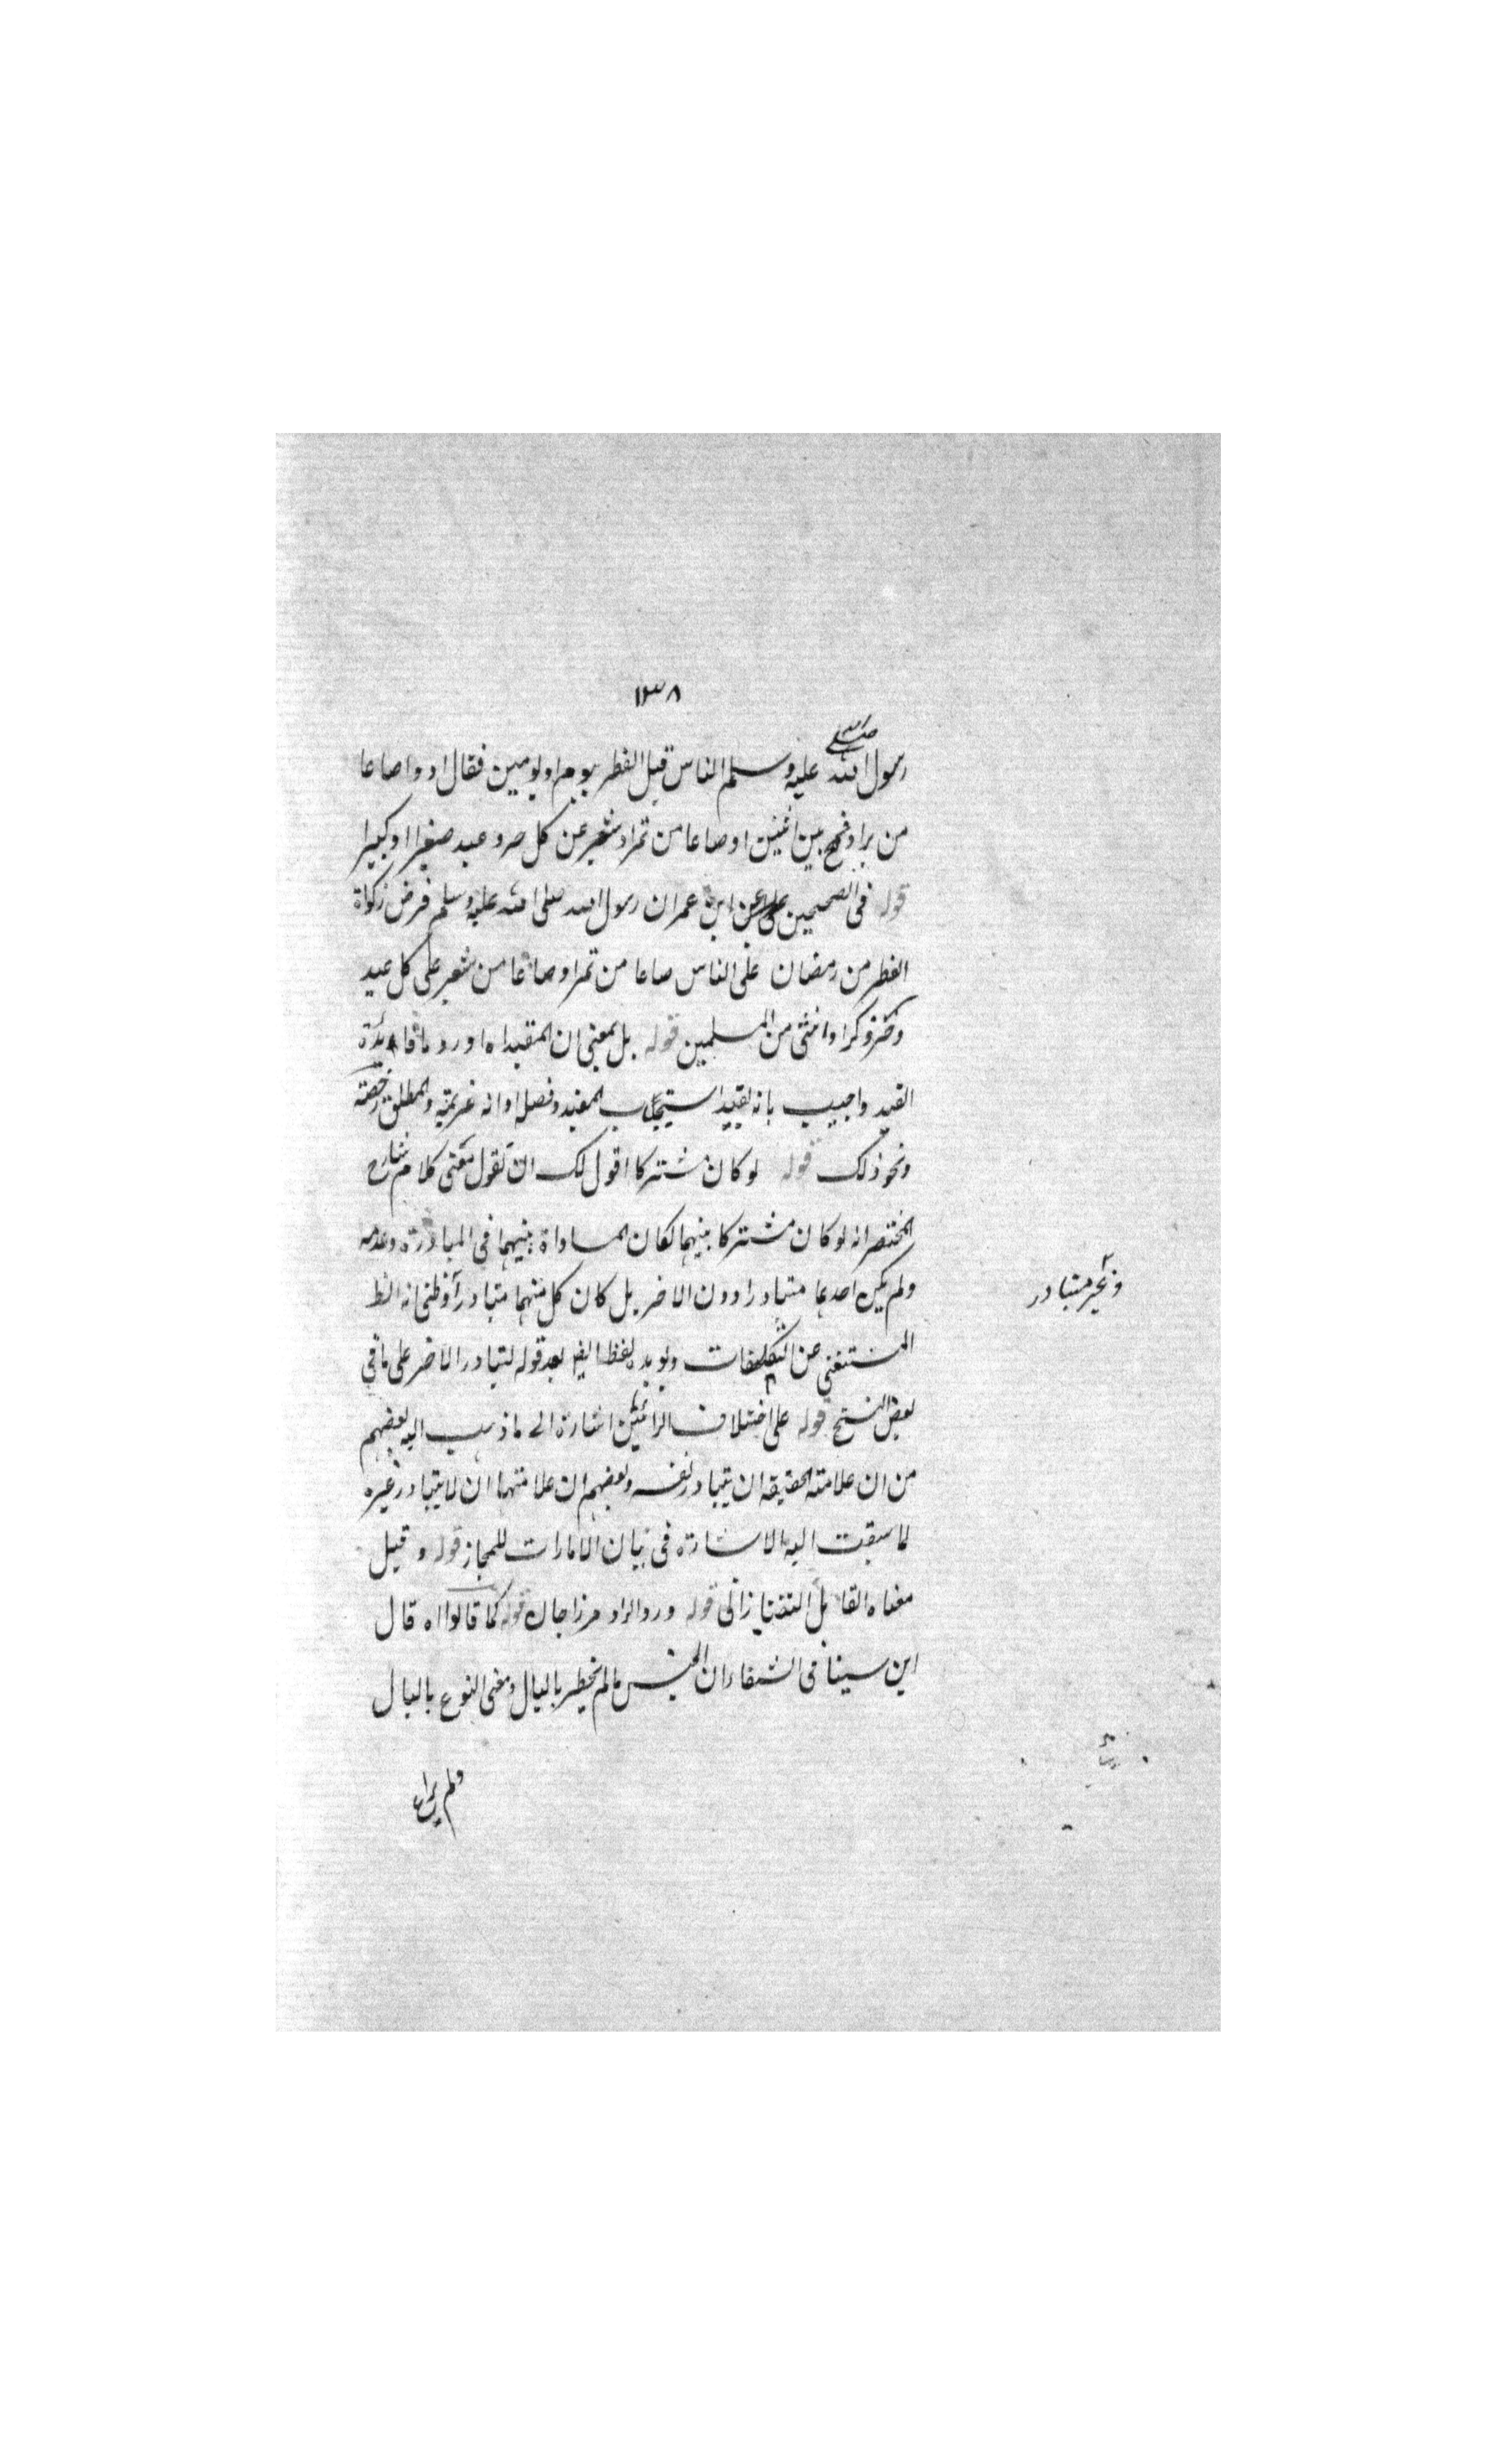 ١٣٨
رسول الله صلى الله عليه وسلم الناس قبل الفطر بيوم او يومين فقال ادوا صاعا
من بر او قمح بين اثنين او صاعا من تمر او شعير عن كل حر و عبد صغيرا او كبيرا
قوله فى الصحيحين عن ابن عمر ان رسول الله صلى الله عليه وسلم فرض زكواة
الفطر من رمضان على الناس صاعا من تمر او صاعا من شعير على كل عبد
وحر ذكر او انثى من المسلمين قوله بل بمعنى ان المقيد اه اورد ما فائدة
القيد واجيب بانه يفيد استحباب المقيد وفضله او انه عزيمة والمطلق رخصة
ونحو ذلك قوله لو كان مشتركا اقول لك ان تقول معنى كلام شارح
المختصر انه لو كان مشتركا بينهما لكان المساواة بينهما فى المبادرة وعدمه
ولم يكن احدهما متبادرا دون الاخر بل كان كل منهما متبادرا وظنى انه الظ
وغير متبادر
المستغنى عن التكلفات ولو بدل لفظ الغير بعد قوله لتبادر الاخر على ما فى
بعض النسخ قوله على اختلاف الرائين اشارة الى ما ذهب اليه بعضهم
من ان علامة الحقيقة ان يتبادر نفسه وبعضهم ان علامتها ان لا يتبادر غيره
لما سبقت اليه الاشارة فى بيان الامارات للمجاز قوله وقيل
معناه القائل التفتازانى قوله ورد الراد مرزاجان قوله كما قالوا اه قال
ابن سينا فى الشفاء ان الجنس ما لم يخطر بالبال ومعنى النوع بالبال
ولم يراع